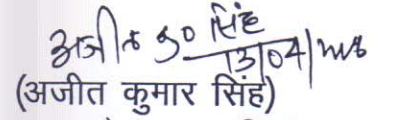 अजीत कु० सिंह
13/04/
(अजीत कुमार सिंह)